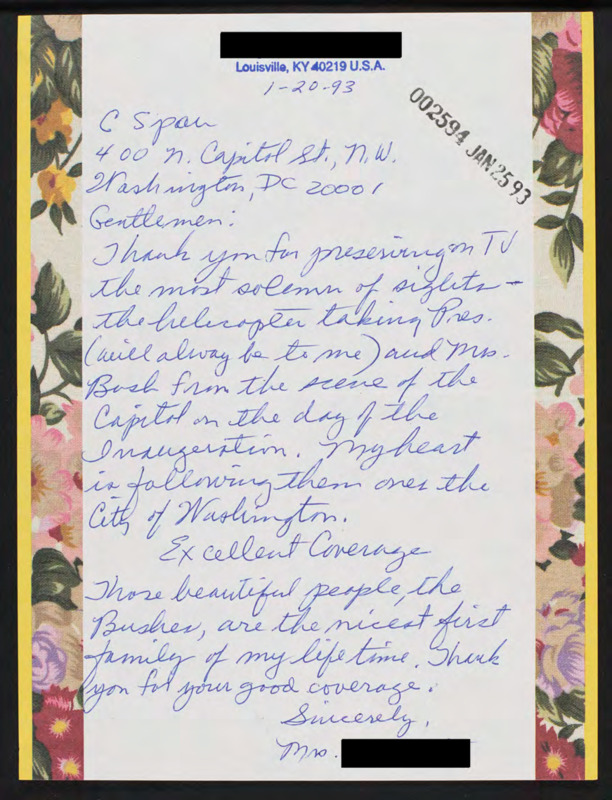 Louisville, KY 40219 U.S.A.
1-20-93
002594 JAN 25 93
C Span
400 N. Capitol St., N.W.
Washington, DC 20001
Gentlemen:
Thank you for preserving on TV
the most solemn of sights -
the helicopter taking Pres.
(will alway be to me) and Mrs.
Bush from the scene of the
Capitol on the day of the
Inaugeration. My heart
is following them over the
City of Washington.
Excellent Coverage
Those beautiful people, the
Bushes, are the nicest first
family of my lifetime. Thank
you for your good coverage.
Sincerely,
Mrs.